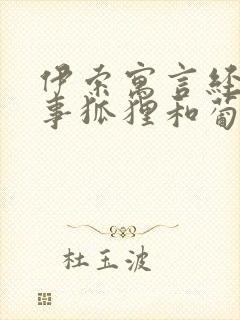 伊索寓言经
事狐狸和葡
杜玉波